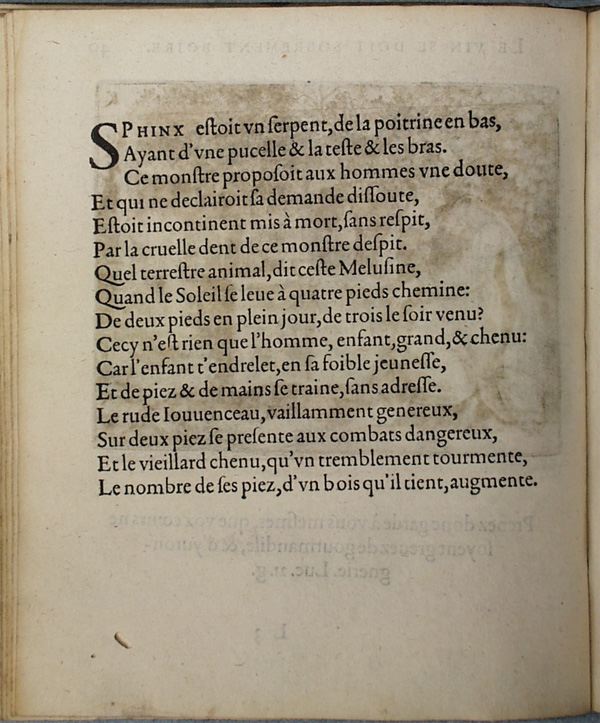 SPHINX eſtoit vn ſerpent, de la poitrine en bas,
Ayant d'vne pucelle & la teſte & les bras.
Ce monſtre propoſoit aux hommes vne doute,
Et qui ne declairoit ſa demande diſſoute,
Eſtoit incontinent mis à mort, ſans reſpit,
Par la cruelle dent de ce monſtre deſpit.
Quel terreſtre animal, dit ceſte Meluſine,
Quand le Soleil ſe leue à quatre pieds chemine:
De deux pieds en plein jour, de trois le ſoir venu?
Cecy n'eſt rien que l'homme, enfant, grand, & chenu:
Car l'enfant t'endrelet, en ſa foible jeuneſſe,
Et de piez & de mains ſe traine, ſans adreſſe.
Le rude Iouuenceau, vaillamment genereux,
Sur deux piez ſe preſente aux combats dangereux,
Et le vieillard chenu, qu'vn tremblement tourmente,
Le nombre de ſes piez, d'vn bois qu'il tient, augmente.